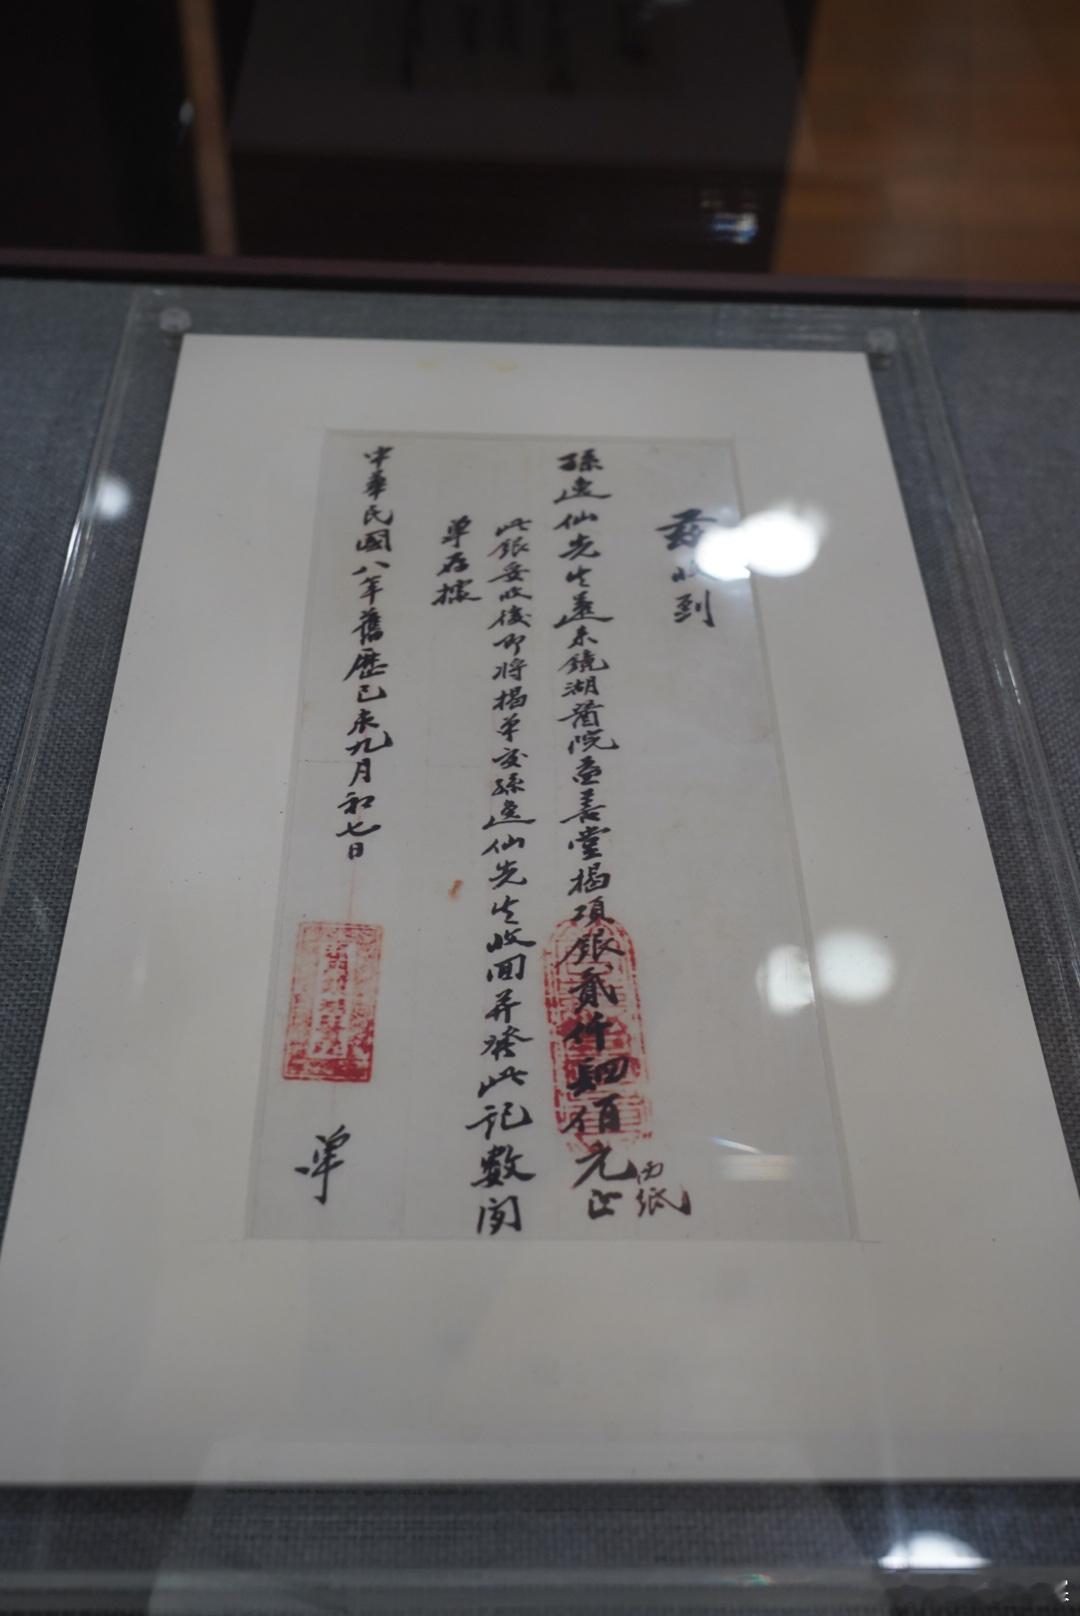 茲收到
孫逸仙先生還來鏡湖醫院善堂揭項銀貳仟肆佰元正
西紙
此銀妥收後即將揭單交孫逸仙先生收囬并發此記數
單存據
中華民國八年舊歷己未九月初七日 單